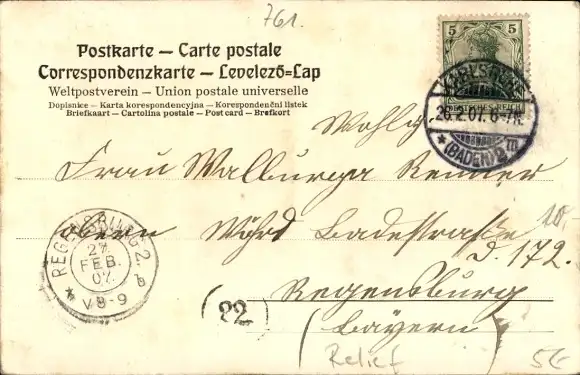 761.
Postkarte — Carte postale
Correspondenzkarte — Levelező-Lap
Weltpostverein — Union postale universelle
Dopisnice — Karta korespondencyjna — Korespondenční listek
Briefkaart — Cartolina postale — Post card — Brefkort
5 5
DEUTSCHES REICH
KARLSRUHE
26.2.07. 6-7N.
* (BADEN) 2 m
Wohlg.
Frau Walburga Renner
obern Wöhrd Badestraße
d. 172.
10,
Regensburg
(Bayern)
REGENSBURG 2
27.
FEB.
07.
V 8-9
(22)
Relief
5€